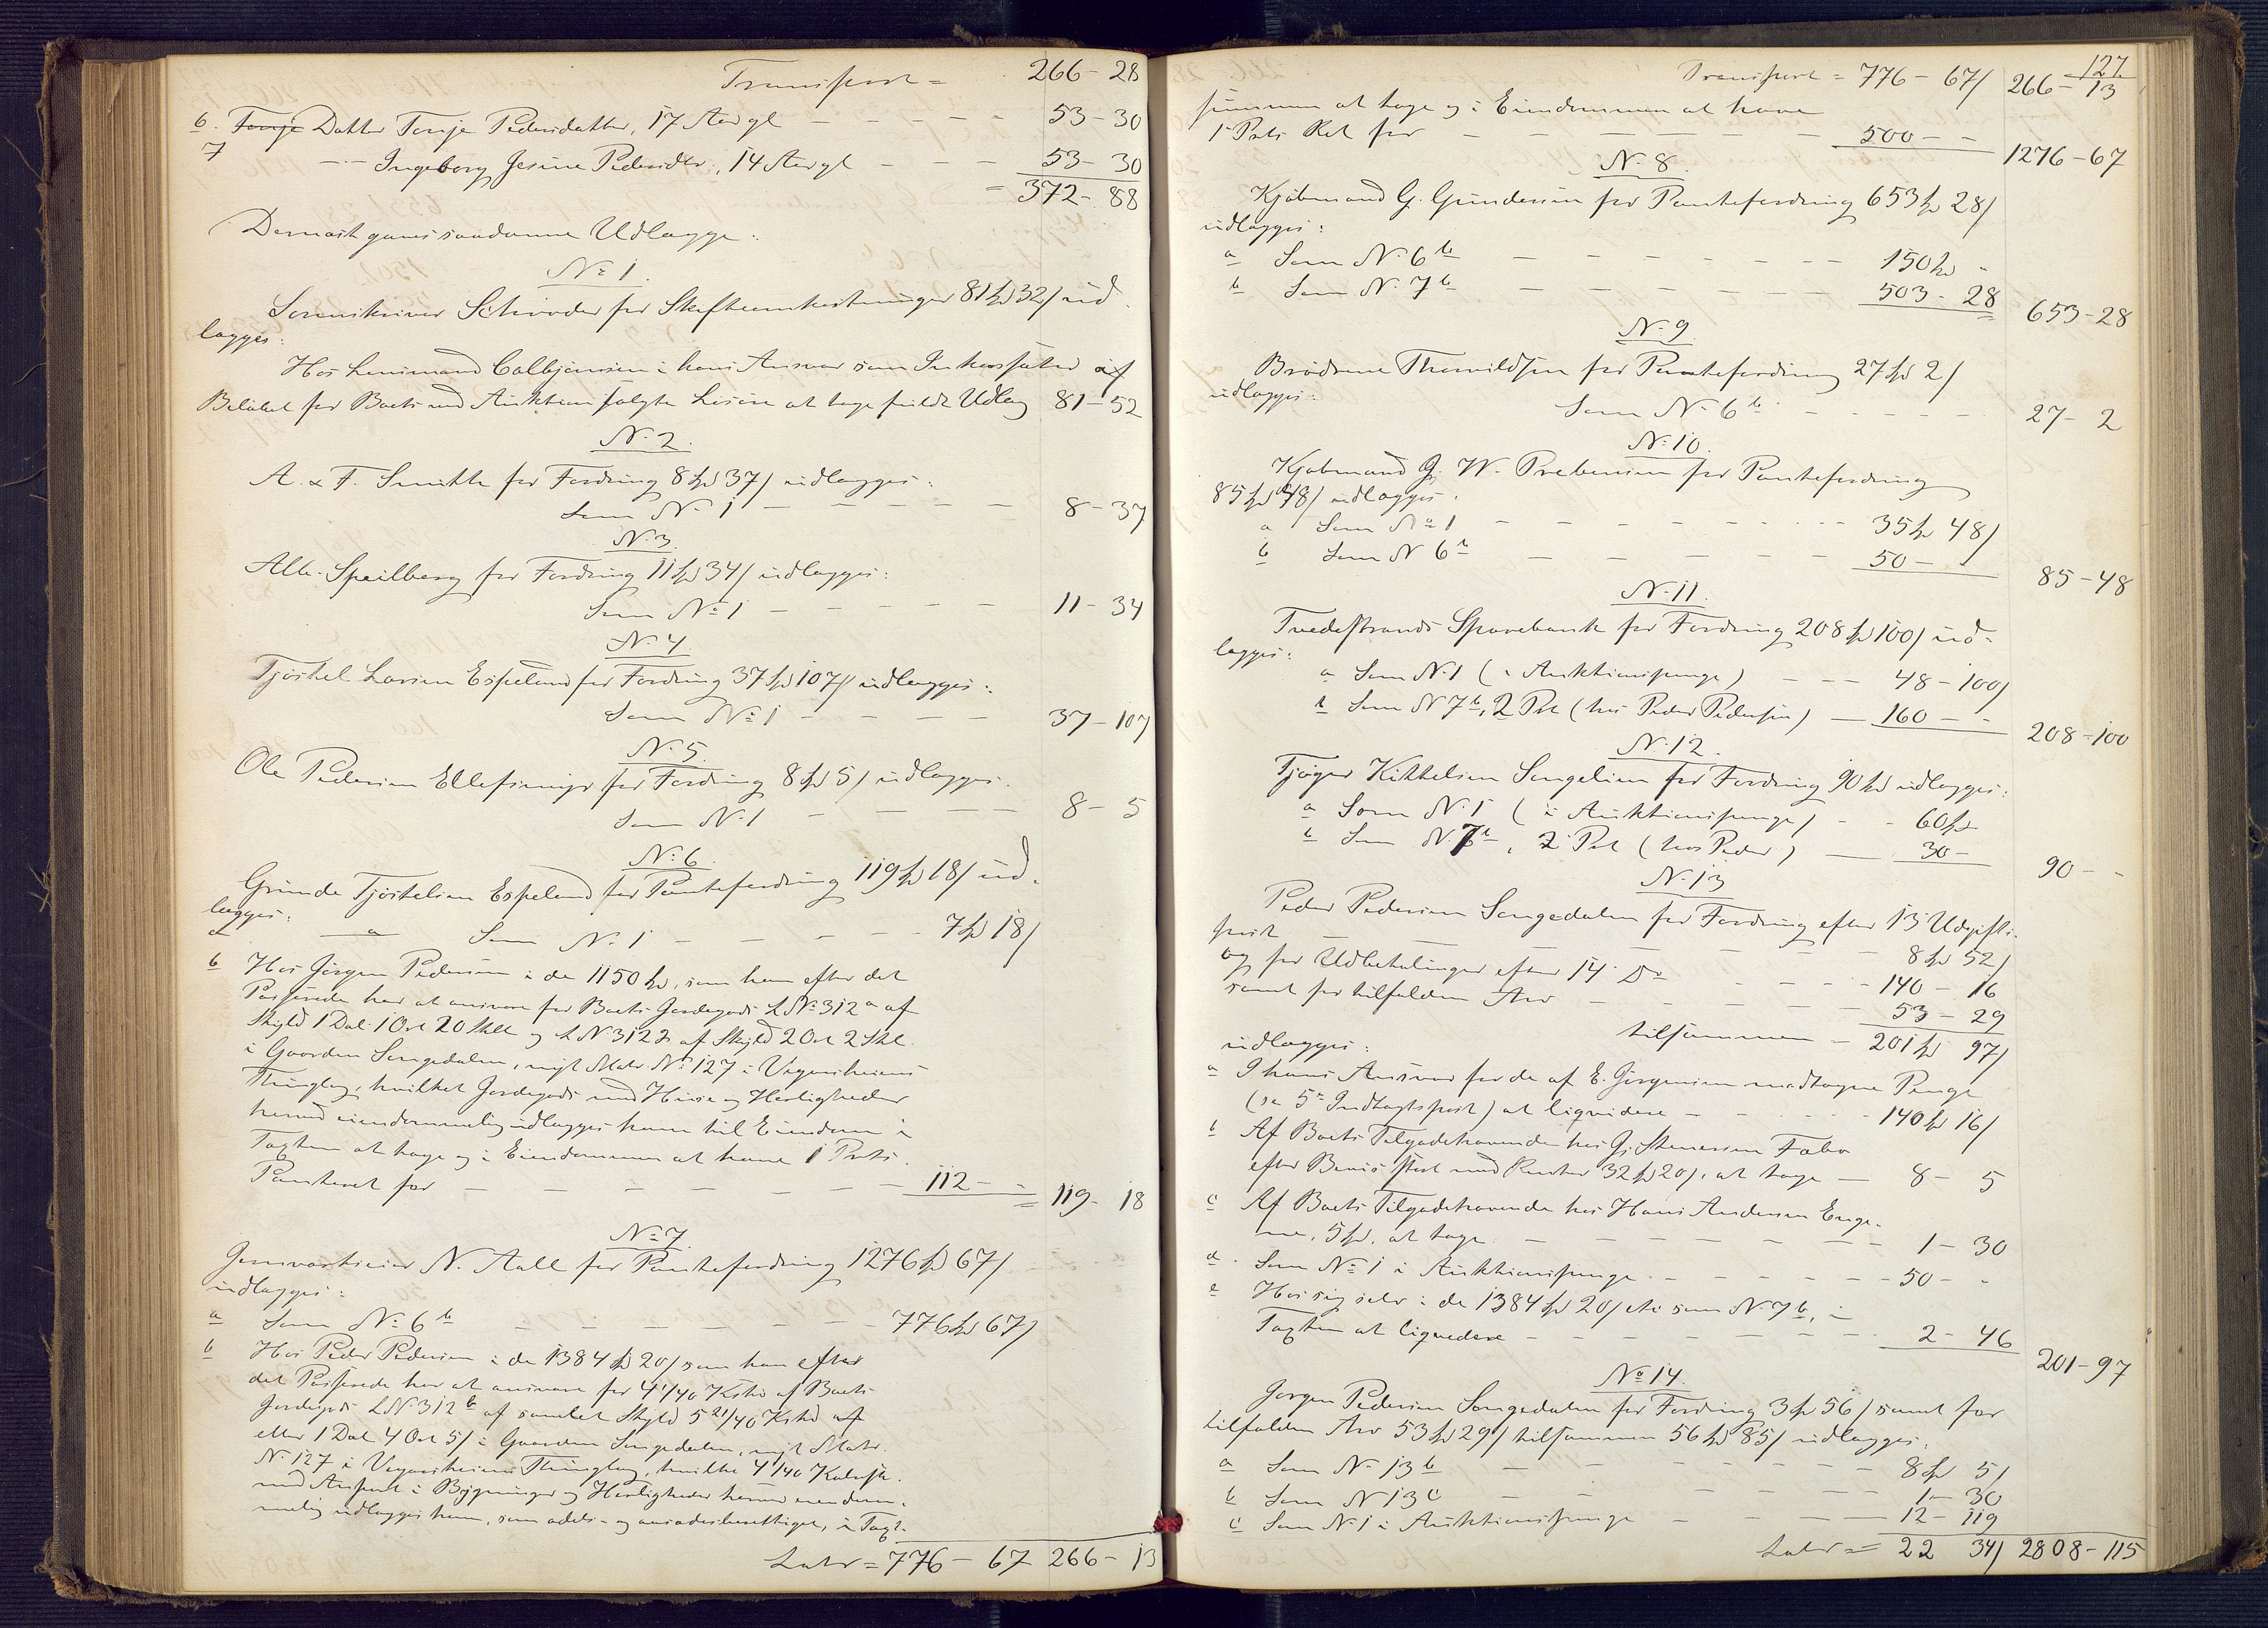 Transport = 266 - 28
6. Tonje Datter Tonje Pedersdatter, 17 Aar gl - - - - 53 - 30
7 — Ingeborg Jesine Pedersdtr, 14 Aar gl - - - 53 - 30
= 372 - 88
Dernæst gjøres saadanne Udlægge:
No 1.
Sorenskriver Schrøder for Skifteomkostninger 81 Spd 52 / ud-
lægges:
Hos Lensmand Calbjørnsen i hans Ansvar som Inkassator af
Beløbet for Boets ved Auktion solgte Løsøre at tage fuldt Udlæg 81 - 52
No 2.
A. & F. Smith for Fordring 8 Spd 37 / udlægges:
Som No 1 - - - - - 8 - 37
No 3.
Alb. Speilberg for Fordring 11 Spd 34 / udlægges:
Som No 1 - - - - - 11 - 34
No 4
Tjøstel Larsen Espeland for Fordring 37 Spd 107 / udlægges:
Som No 1 - - - - 37 - 107
No 5.
Ole Pedersen for Fordring 8 Spd 5 / udlægges.
Som No 1 - - - - 8 - 5
No 6.
Grunde Tjøstelsen Espeland for Pantefordring 119 Spd 18 / ud-
lægges:
a Som No 1 - - - - - 7 Spd 18 /
b Hos Jørgen Pedersen i de 1150 Spd, som han efter det
Passerede har at ansvare for Boets Jordegods L No 312 a af
Skyld 1 Dal. 1 Ort 20 Skill og L N 312 af Skyld 2 Ort 2 Skl.
i Gaarden Songedalen, nyt Matr. No 127 i Vegarsheiens
Thinglag, hvilket Jordegods med Huse og Herligheder
herved eiendommelig udlægges ham til Eiendom i
Taxten at tage og i Eiendommen at have 1 Prts.
Panteret for - - - - - - - 112 - - 119 - 18
No 7
Jernværkseier N. Aall for Pantefordring 1276 Spd 67 /
udlægges:
a Som No 6 b - - - - - - - 776 Spd 67 /
b Hos Peder Pedersen i de 1384 Spd 20 / som han efter
det Passerede har at ansvare for 4 1/40 Kshd af Boets
Jordegods L N 312 b af samlet Skyld 5 21/40 Kshd af
eller 1 Dal 4 Ort 5 / i Gaarden Songedalen, nyt Matr.
No 127 i Vegarsheiens Thinglag, hvilke 4 1/40 Kalvsk.
med Anpart i Bygninger og Herligheder herved eiendom-
melig udlægges ham, som odels- og aasædesberettiget, i Taxt-
Latus = 776 - 67 266 - 13
127
Transport = 776 - 67 / 266 - 13
summen at tage og i Eiendommen at have
1 Prts Ret for - - - - - - 500 - - 1276 - 67
No 8.
Kjøbmand G. Gundersen for Panteforderung 653 Spd 28 /
udlægges:
a Som No 6 b - - - - - - 150 Spd -
b Som No 7 b - - - - - - 503 - 28 653 - 28
No 9.
Brødrene Thorvildsen for Panteforderung 27 Spd 2 /
udlægges:
Som No 6 b - - - - - 27 - 2
No 10.
Kjøbmand G. W. Prebensen for Panteforderung
85 Spd 48 / udlægges.
a Som No 1 - - - - - - 35 Spd 48 /
b Som N 6 b - - - - - 50 - - 85 - 48
No 11.
Tvedestrands Sparebank for Fordring 208 Spd 100 / ud-
lægges:
a Som No 1 (i Auktionspenge) - - - 48 - 100 /
b Som N 7 b, 2 Prt (hos Peder Pedersen) - 160 - - 208 - 100
No 12.
Tjøger Kittelsen Songelien for Fordring 90 Spd udlægges:
a Som No 1 (i Auktionspenge) - - 60 Spd
b Som N 7 b, 2 Prt (hos Peder) - 30 - 90 - -
No 13
Peder Pedersen Songedalen for Fordring efter 13 Udgifts-
post - - - - - - - 8 Spd 52 /
og for Udbetalinger efter 14 Do - - - - 140 - 16
samt for tilfalden Arv - - - - - 53 - 29
tilsammen - 201 Spd 97 /
udlægges:
a I hans Ansvar for de af E. Jørgensen modtagne Penge
(se 5te Indtægtspost) at liquidere - - - - 140 Spd 16 /
b Af Boets Tilgodehavende hos G. Stenersen Fabo
efter Bevis stort med Renter 32 Spd 20 /, at tage - 8 - 5
c Af Boets Tilgodehavende hos Hans Andersen Enge-
ne, 5 Spd, at tage - - - - - - 1 - 30
d. Som No 1 i Auktionspenge - - - - - 50 - -
e Hos sig selv i de 1384 Spd 20 / etc som No 7 b, i
Taxten at liquidere - - - - - 2 - 46 201 - 97
No 14.
Jørgen Pedersen Songedalen for Fordring 3 Spd 56 / samt for
tilfalden Arv 53 Spd 29 / tilsammen 56 Spd 85 / udlægges.
a Som No 13 b - - - - - 8 Spd 5 /
b Som N 13 c - - - - - 1 - 30
c Som No 1 i Auktionspenge - - - - 12 - 119
Latus = 22 34 / 2808 - 115